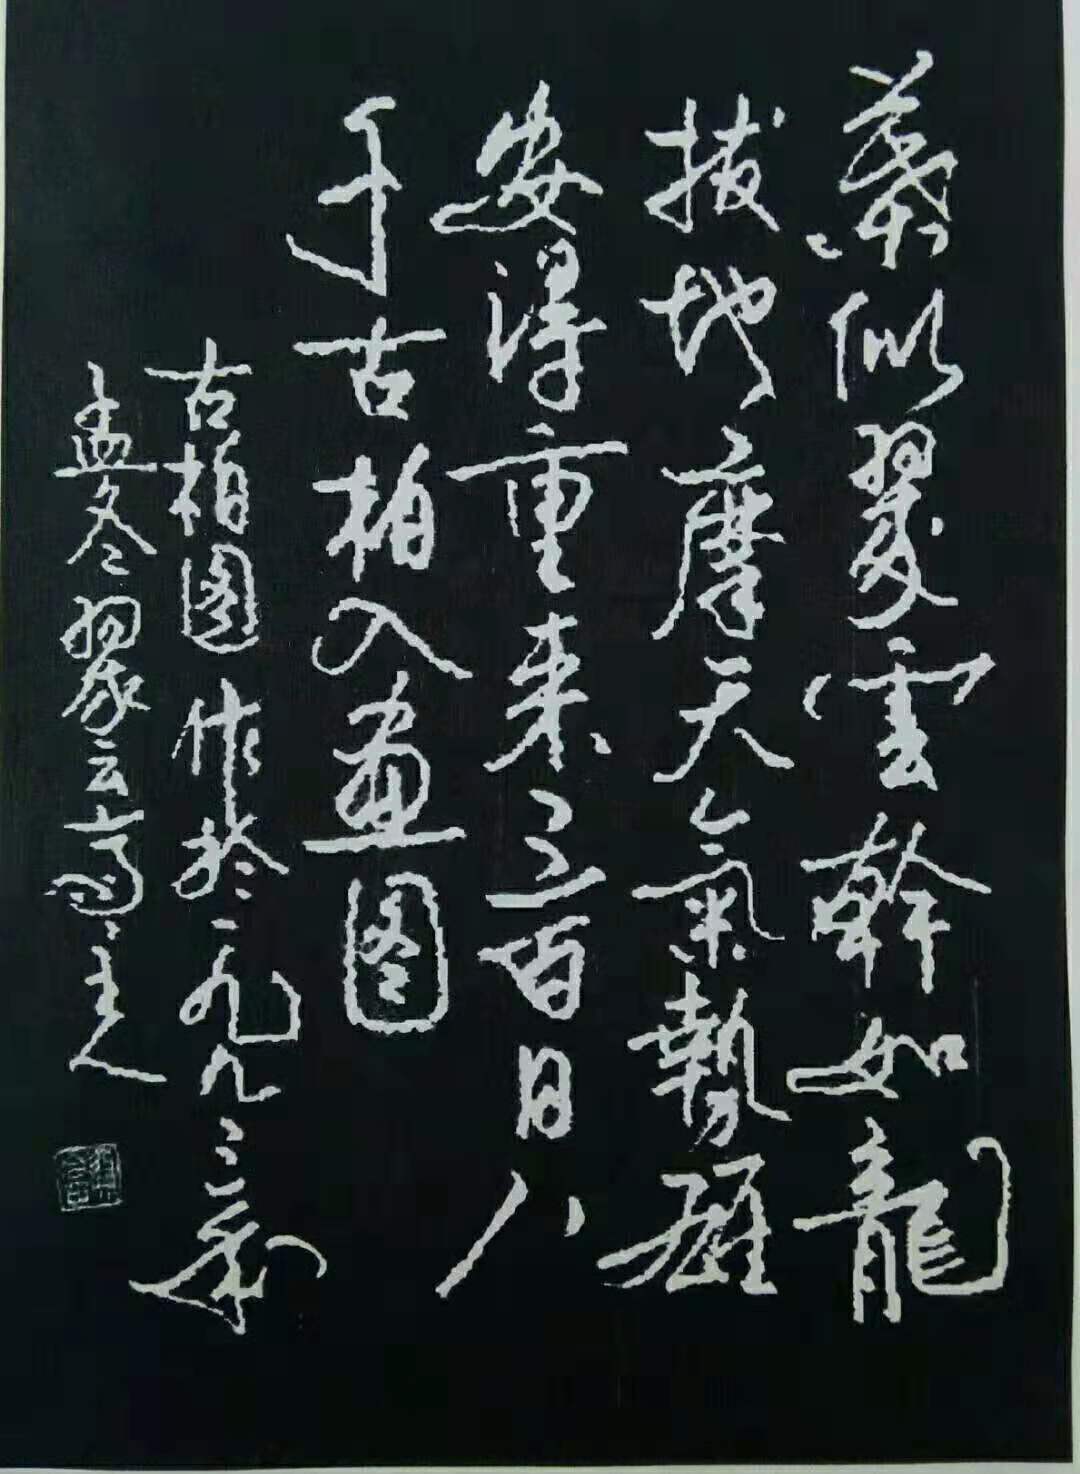 葉似翠雲幹如龍
拔地摩天氣勢雄
安得重来三百日八
千古柏入畫图
古柏图作於一九九三年
孟冬翠云主人